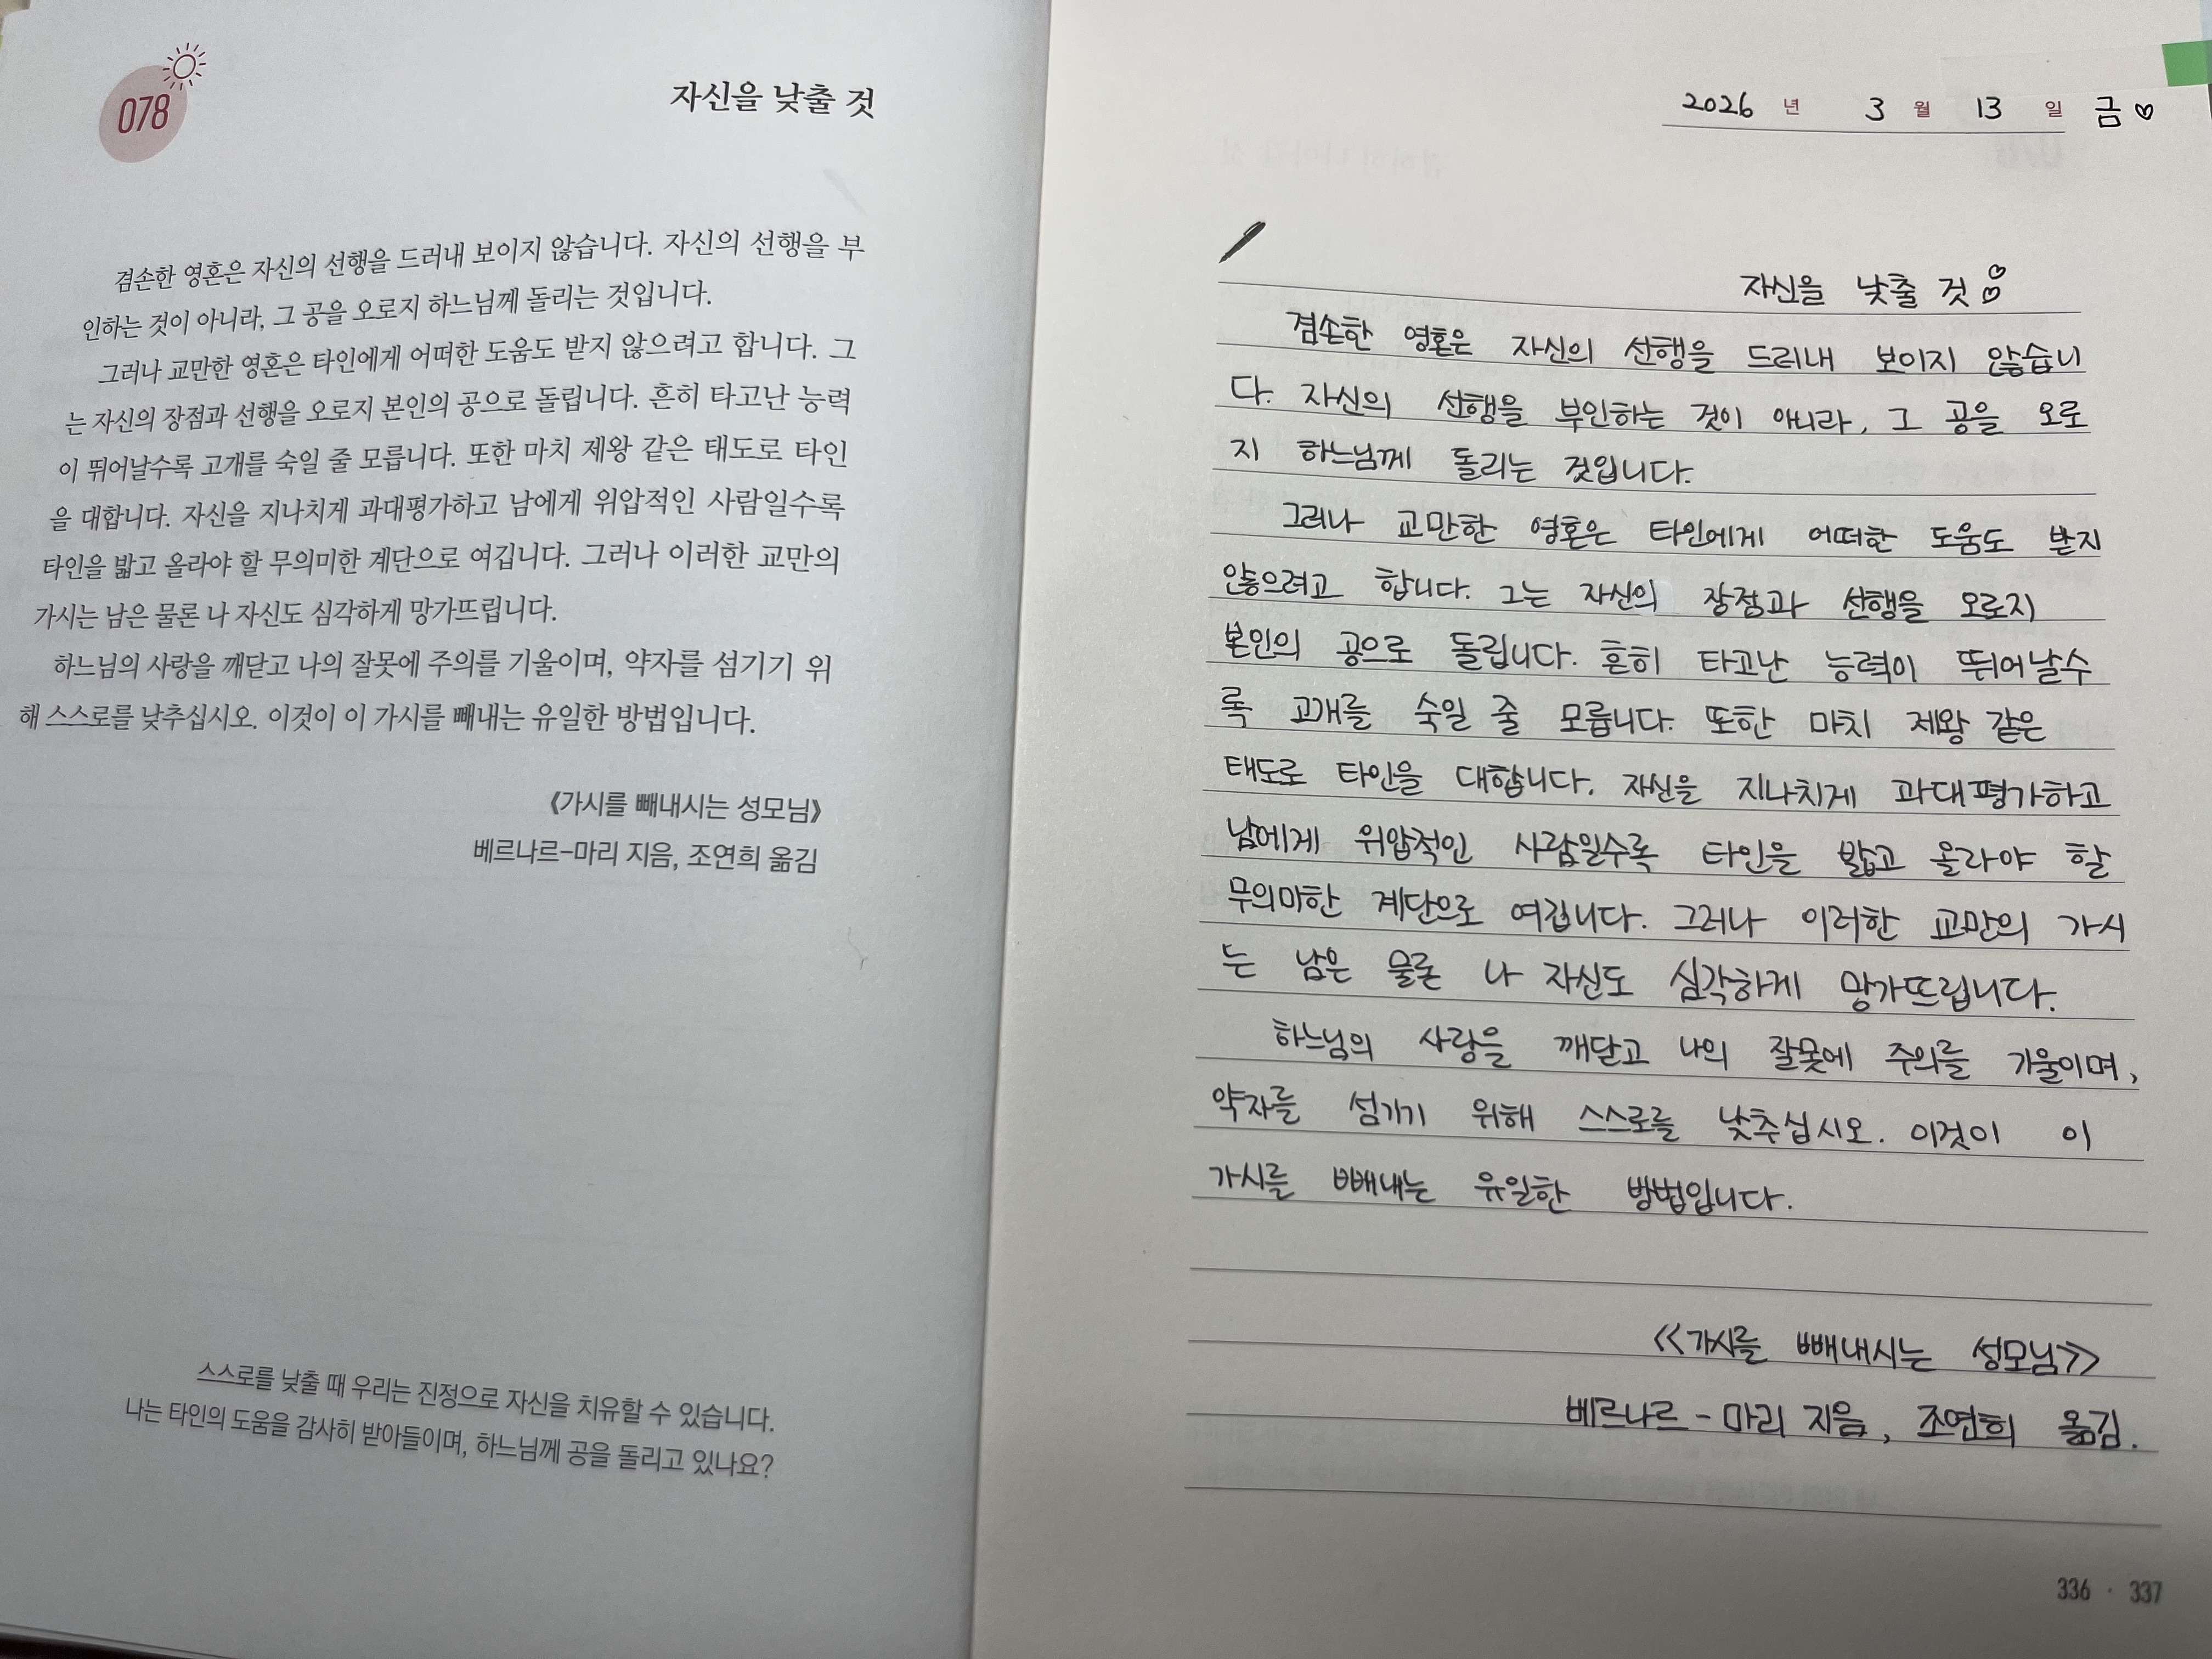 078
자신을 낮출 것
겸손한 영혼은 자신의 선행을 드러내 보이지 않습니다. 자신의 선행을 부
인하는 것이 아니라, 그 공을 오로지 하느님께 돌리는 것입니다.
그러나 교만한 영혼은 타인에게 어떠한 도움도 받지 않으려고 합니다. 그
는 자신의 장점과 선행을 오로지 본인의 공으로 돌립니다. 흔히 타고난 능력
이 뛰어날수록 고개를 숙일 줄 모릅니다. 또한 마치 제왕 같은 태도로 타인
을 대합니다. 자신을 지나치게 과대평가하고 남에게 위압적인 사람일수록
타인을 밟고 올라야 할 무의미한 계단으로 여깁니다. 그러나 이러한 교만의
가시는 남은 물론 나 자신도 심각하게 망가뜨립니다.
하느님의 사랑을 깨닫고 나의 잘못에 주의를 기울이며, 약자를 섬기기 위
해 스스로를 낮추십시오. 이것이 이 가시를 빼내는 유일한 방법입니다.
《가시를 빼내시는 성모님》
베르나르-마리 지음, 조연희 옮김
스스로를 낮출 때 우리는 진정으로 자신을 치유할 수 있습니다.
나는 타인의 도움을 감사히 받아들이며, 하느님께 공을 돌리고 있나요?
2026 년 3 월 13 일 금♡
자신을 낮출 것
겸손한 영혼은 자신의 선행을 드러내 보이지 않습니
다. 자신의 선행을 부인하는 것이 아니라, 그 공을 오로
지 하느님께 돌리는 것입니다.
그러나 교만한 영혼은 타인에게 어떠한 도움도 받지
않으려고 합니다. 그는 자신의 장점과 선행을 오로지
본인의 공으로 돌립니다. 흔히 타고난 능력이 뛰어날수
록 고개를 숙일 줄 모릅니다. 또한 마치 제왕 같은
태도로 타인을 대합니다. 자신을 지나치게 과대평가하고
남에게 위압적인 사람일수록 타인을 밟고 올라야 할
무의미한 계단으로 여깁니다. 그러나 이러한 교만의 가시
는 남은 물론 나 자신도 심각하게 망가뜨립니다.
하느님의 사랑을 깨닫고 나의 잘못에 주의를 기울이며,
약자를 섬기기 위해 스스로를 낮추십시오. 이것이 이
가시를 빼내는 유일한 방법입니다.
<<가시를 빼내시는 성모님>>
베르나르-마리 지음, 조연희 옮김.
336 · 337